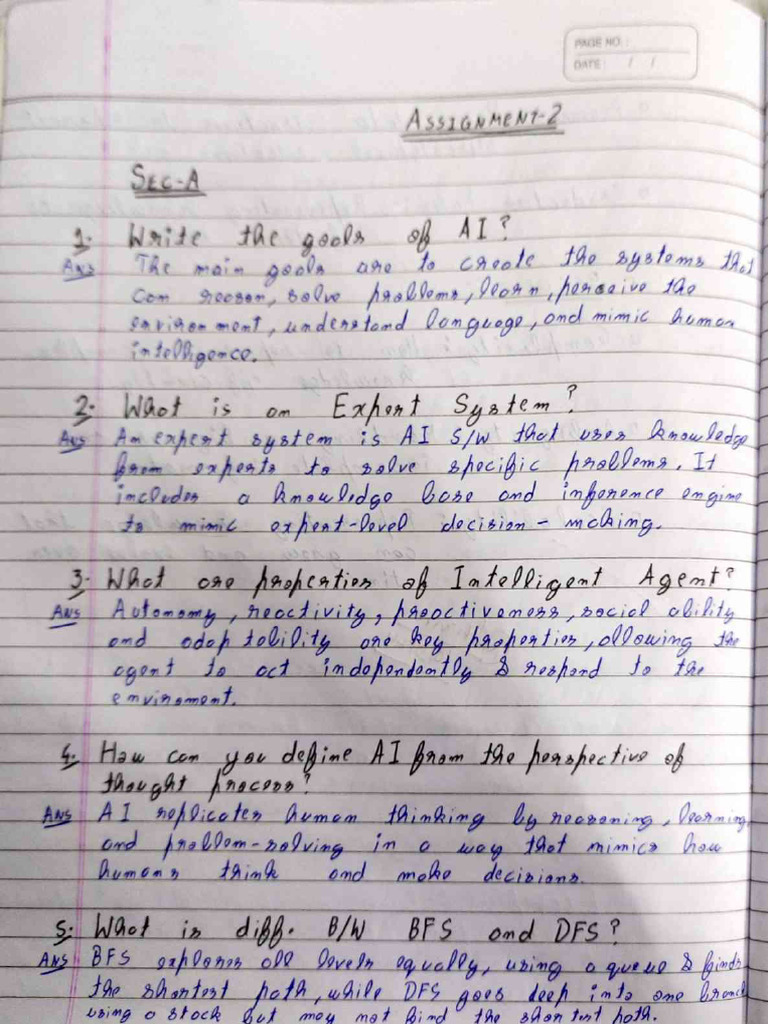 PAGE NO. :
DATE : / /
ASSIGNMENT-2
SEC-A
1. Write the goals of AI?
Ans The main goals are to create the systems that
can reason, solve problems, learn, perceive the
environment, understand language, and mimic human
intelligence.
2. What is an Expert System?
Ans An expert system is AI S/W that uses knowledge
from experts to solve specific problems. It
includes a knowledge base and inference engine
to mimic expert-level decision-making.
3. What are properties of Intelligent Agent?
Ans Autonomy, reactivity, proactiveness, social ability
and adaptability are key properties, allowing the
agent to act independently & respond to the
enviroment.
4. How can you define AI from the perspective of
thought process?
Ans AI replicates human thinking by reasoning, learning,
and problem-solving in a way that mimics how
humans think and make decisions.
5. What is diff. B/W BFS and DFS?
Ans BFS explores all levels equally, using a queue & finds
the shortest path, while DFS goes deep into one branch
using a stack but may not find the shortest path.